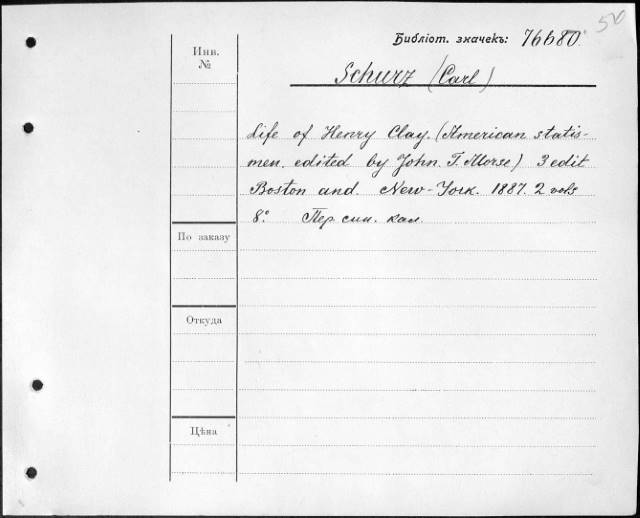 50
Библіот. значекъ: 76680.
Инв.
№
Schurz (Carl)
Life of Henry Clay. (American statis-
men. edited by John. T. Morse) 3 edit
Boston and. New-York. 1887. 2 vols
8.° Пер. син. кал.
По заказу
Откуда
Цѣна